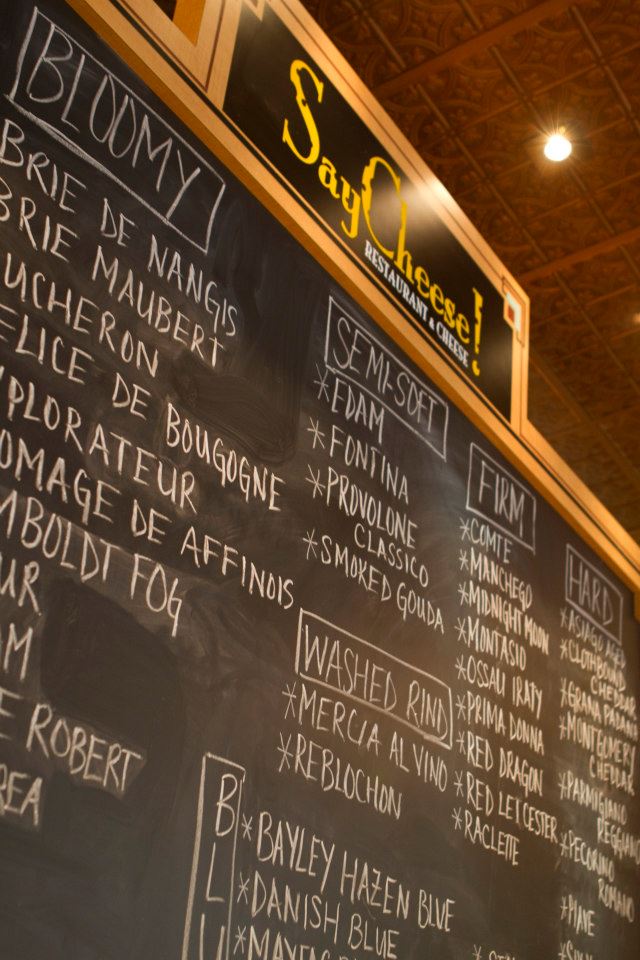 Say Cheese!
RESTAURANT & CHEESE
BLOOMY
BRIE DE NANGIS
BRIE MAUBERT
UCHERON
ELICE DE BOUGOGNE
PLORATEUR
OMAGE DE AFFINOIS
MBOLDT FOG
UR
AM
E ROBERT
REA
SEMI-SOFT
*EDAM
*FONTINA
*PROVOLONE
CLASSICO
*SMOKED GOUDA
WASHED RIND
*MERCIA AL VINO
*REBLOCHON
BLU
*BAYLEY HAZEN BLUE
*DANISH BLUE
*MAYTAG
FIRM
*COMTE
*MANCHEGO
*MIDNIGHT MOON
*MONTASIO
*OSSAU IRATY
*PRIMA DONNA
*RED DRAGON
*RED LEICESTER
*RACLETTE
HARD
*ASIAGO AGED
*CLOTHBOUND
CHEDDAR
*GRANA PADANO
*MONTGOMERY
CHEDDAR
*PARMIGIANO
REGGIAN
*PECORINO
ROMANO
*PIAVE